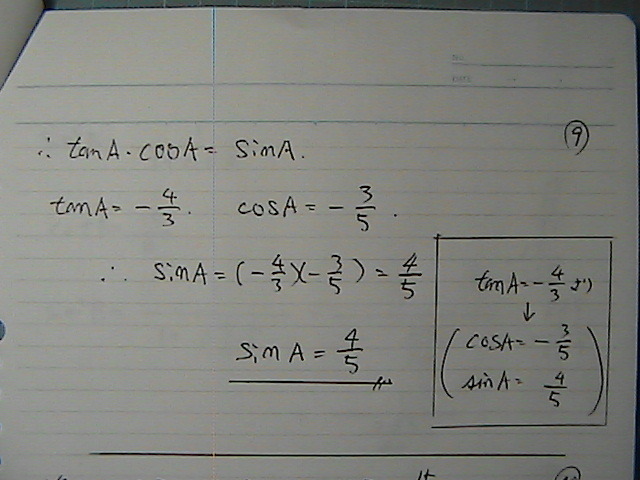 ⑨
∴ tanA・cosA = sinA.
tanA = -4/3. cosA = -3/5.
∴ sinA = (-4/3)(-3/5) = 4/5
sinA = 4/5
tanA = -4/3 より
↓
(cosA = -3/5
sinA = 4/5)